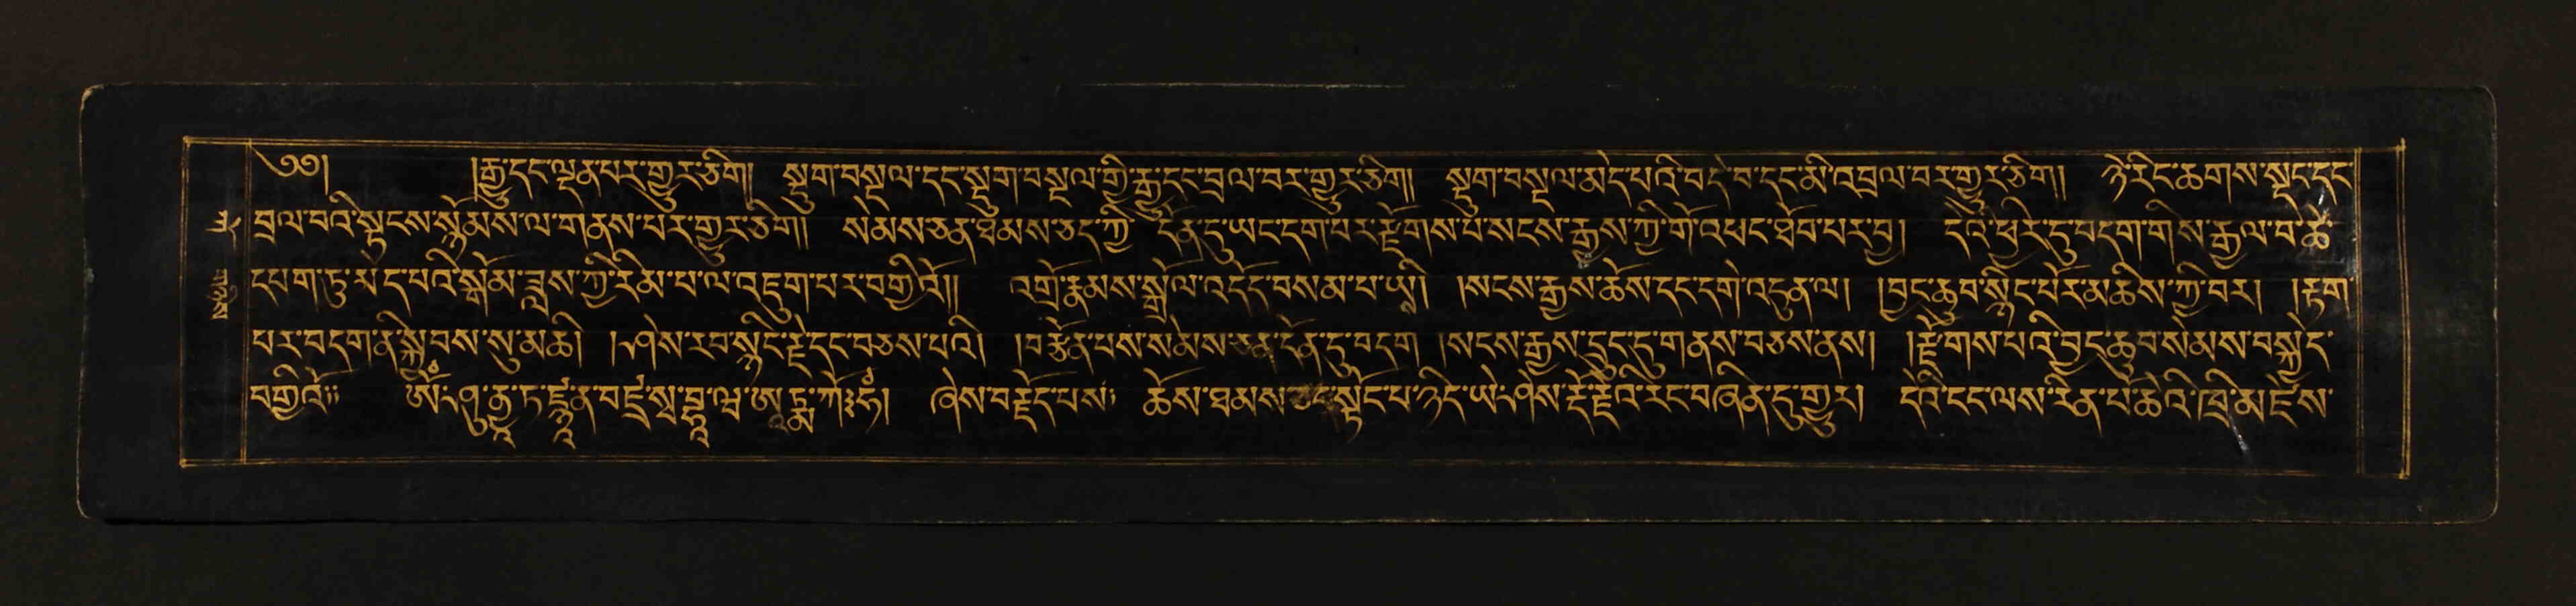 ༄༅། །རྒྱུ་དང་ལྡན་པར་གྱུར་ཅིག། སྡུག་བསྔལ་དང་སྡུག་བསྔལ་གྱི་རྒྱུ་དང་བྲལ་བར་གྱུར་ཅིག། སྡུག་བསྔལ་མེད་པའི་བདེ་བ་དང་མི་འབྲལ་བར་གྱུར་ཅིག། ཉེ་རིང་ཆགས་སྡང་དང
བྲལ་བའི་བཏང་སྙོམས་ལ་གནས་པར་གྱུར་ཅིག། སེམས་ཅན་ཐམས་ཅད་ཀྱི་དོན་དུ་ཡང་དག་པར་རྫོགས་པ་སངས་རྒྱས་ཀྱི་གོ་འཕང་ཐོབ་པར་བྱ། དའི་ཕྱིར་དུ་བདག་གིས་རྒྱལ་བ་ཚེ་
དཔག་ཏུ་མེད་པའི་སྒོམ་ཟླས་ཀྱི་རིམ་པ་ལ་འཇུག་པར་བགྱིའོ།། འགྲོ་རྣམས་སྒྲོལ་འདོད་བསམ་པ་ཡི། །སངས་རྒྱས་ཆོས་དང་དགེ་འདུན་ལ། །བྱང་ཆུབ་སྙིང་པོར་མཆིས་ཀྱི་བར། །རྟག་
པར་བདག་ནི་སྐྱབས་སུ་མཆི། །ཤེས་རབ་སྙིང་རྗེ་དང་བཅས་པའི། །བརྩོན་པས་སེམས་ཅན་དོན་དུ་བདག །སངས་རྒྱས་དྲུང་དུ་གནས་བཅས་ནས། །རྫོགས་པའི་བྱང་ཆུབ་སེམས་བསྐྱེད་
བགྱིའོ།། ཨོཾ་ཤུ་ནྱ་ཏ་ཛྙཱ་ན་བཛྲ་སྭ་བྷཱ་ཝ་ཨཱཏྨ་ཀོ྅ཧཾ། ཞེས་བརྗོད་པས། ཆོས་ཐམས་ཅད་སྟོང་པ་ཉིད་ཡེ་ཤེས་རྡོ་རྗེའི་རང་བཞིན་དུ་གྱུར། དེའི་ངང་ལས་རིན་པོ་ཆེའི་ཁྲི་མཛེས་